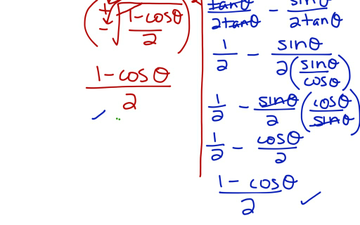 (±√((1-cosθ)/2))²
(1-cosθ)/2
✓
tanθ/(2tanθ) - sinθ/(2tanθ)
1/2 - sinθ/(2(sinθ/cosθ))
1/2 - sinθ/2 (cosθ/sinθ)
1/2 - cosθ/2
(1-cosθ)/2 ✓